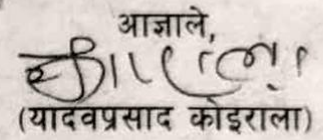 आज्ञाले,
(यादवप्रसाद कोइराला)